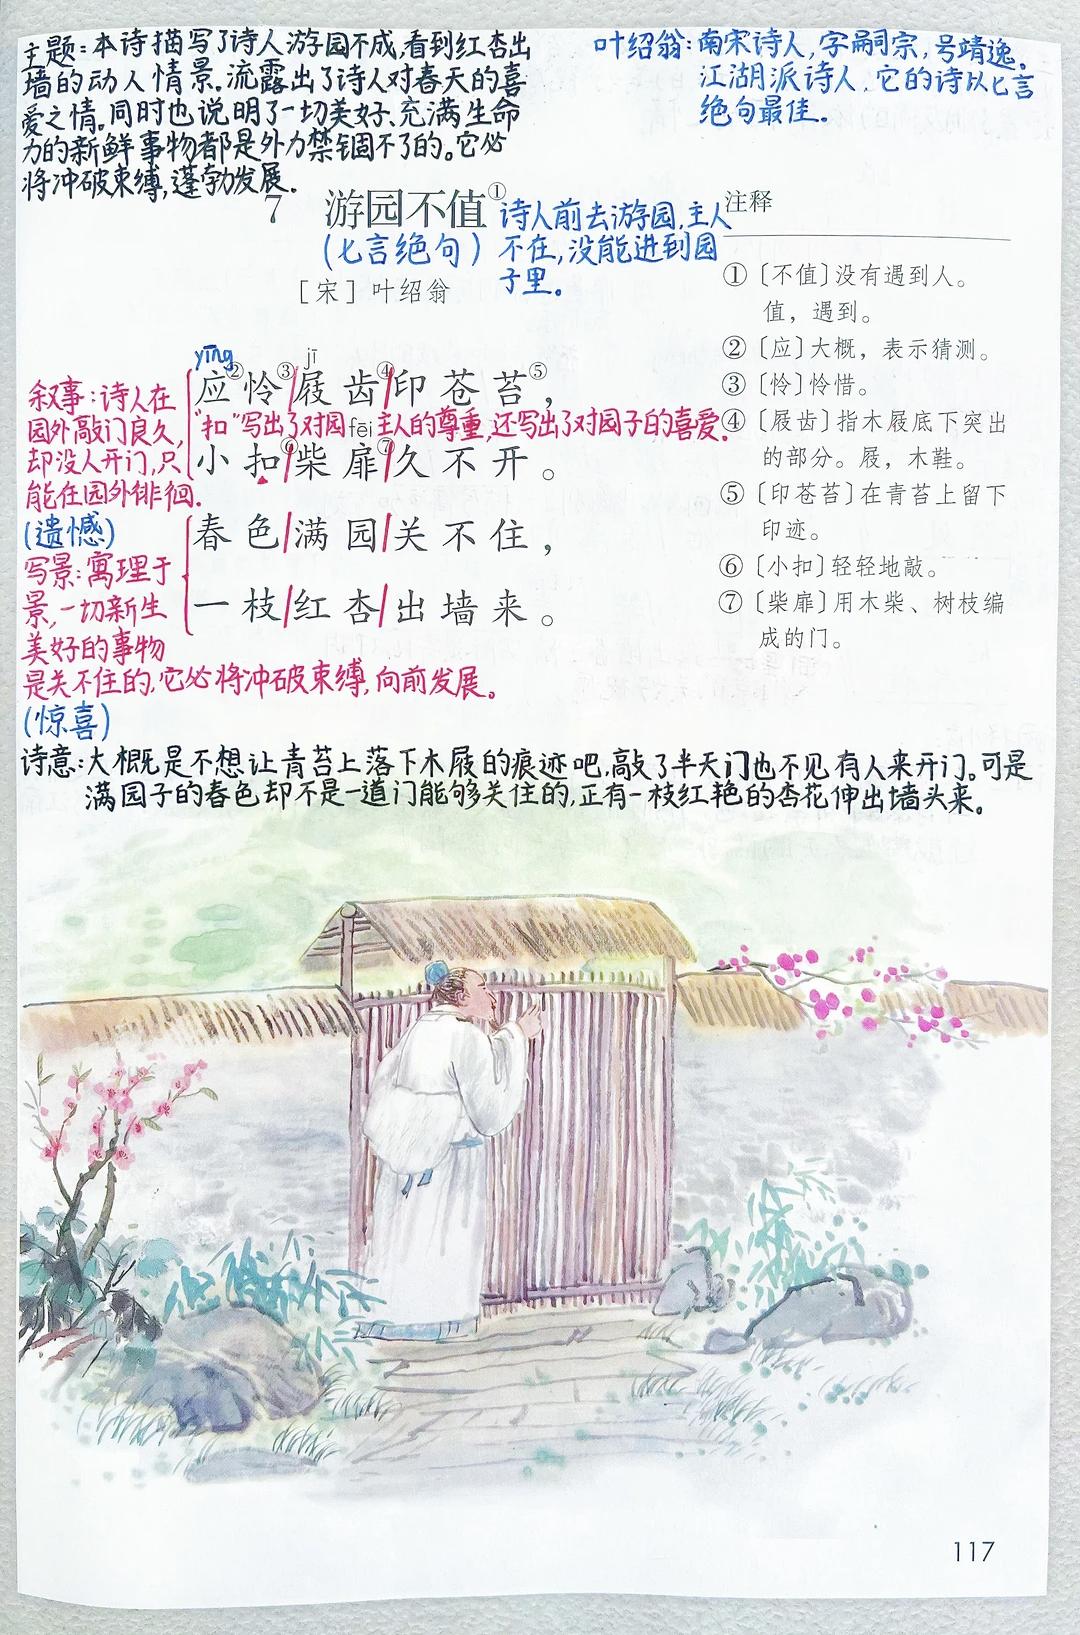 主题:本诗描写了诗人游园不成,看到红杏出
墙的动人情景。流露出了诗人对春天的喜
爱之情。同时也说明了一切美好、充满生命
力的新鲜事物都是外力禁锢不了的。它必
将冲破束缚,蓬勃发展.
叶绍翁:南宋诗人,字嗣宗,号靖逸。
江湖派诗人.它的诗以七言
绝句最佳.
7 游园不值①
(七言绝句)
诗人前去游园,主人
不在,没能进到园
子里。
[宋] 叶绍翁
yīng jī
应②怜③/屐齿④/印苍苔⑤,
"扣"写出了对园主人的尊重,还写出了对园子的喜爱.
fēi
小扣⑥/柴扉⑦/久不开。
春色/满园/关不住,
一枝/红杏/出墙来。
叙事:诗人在
园外敲门良久,
却没人开门,只
能在园外徘徊.
(遗憾)
写景:寓理于
景,一切新生
美好的事物
是关不住的,它必将冲破束缚,向前发展。
(惊喜)
注释
①〔不值〕没有遇到人。
值,遇到。
②〔应〕大概,表示猜测。
③〔怜〕怜惜。
④〔屐齿〕指木屐底下突出
的部分。屐,木鞋。
⑤〔印苍苔〕在青苔上留下
印迹。
⑥〔小扣〕轻轻地敲。
⑦〔柴扉〕用木柴、树枝编
成的门。
诗意:大概是不想让青苔上落下木屐的痕迹吧,敲了半天门也不见有人来开门。可是
满园子的春色却不是一道门能够关住的,正有一枝红艳的杏花伸出墙头来。
117